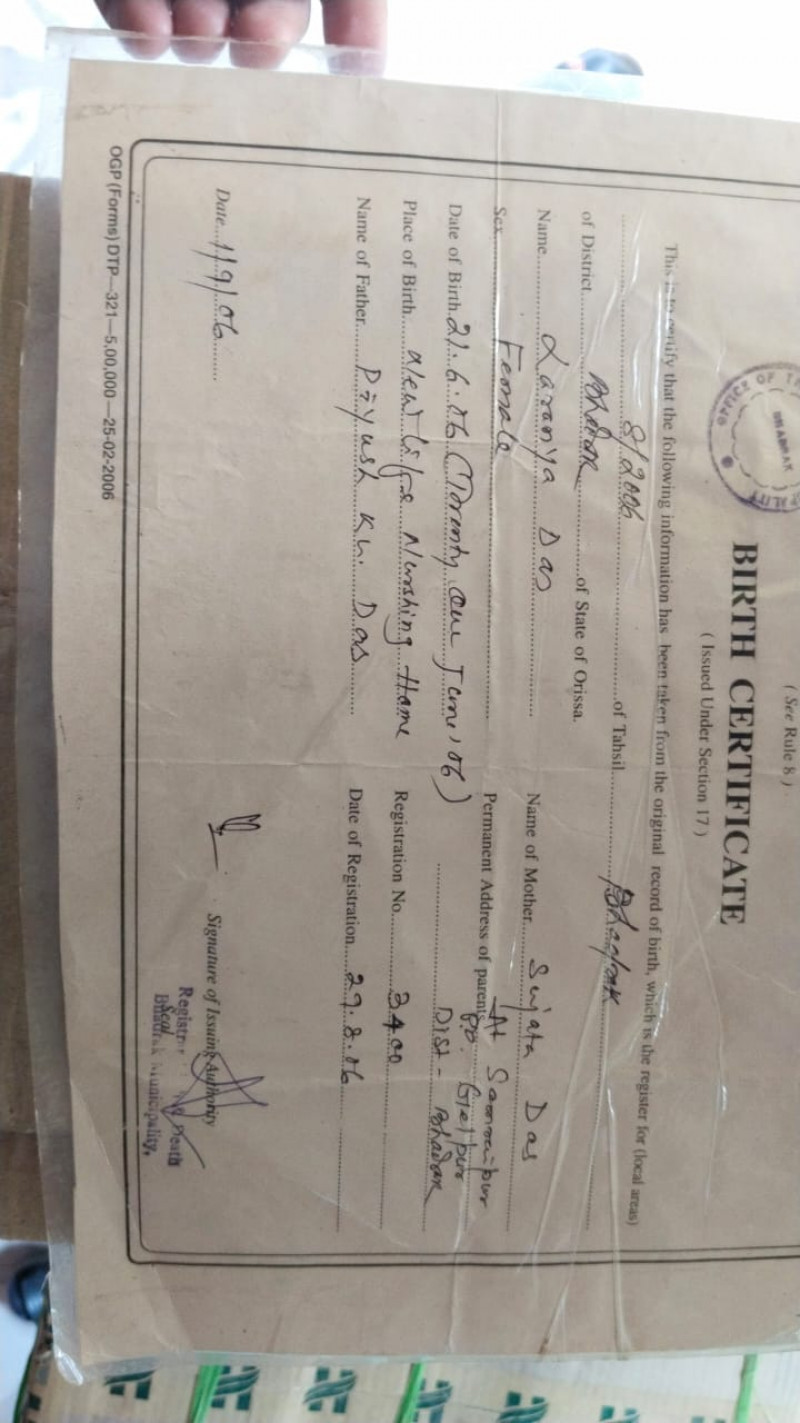 ( See Rule 8 )
BIRTH CERTIFICATE
( Issued Under Section 17 )
OFFICE OF
BHADRAK
This is to certify that the following information has been taken from the original record of birth, which is the register for (local areas)
8/2006 of Tahsil Bhadrak
of District Bhadrak of State of Orissa.
Name Lavanya Das
Name of Mother Sujata Das
Sex Female
Permanent Address of parents At
P.O.
Dist - Bhadrak
Date of Birth 21.6.06 (Twenty one June '06)
Place of Birth New Life Nurshing Home
Registration No. 3400
Name of Father Piyush Ku. Das
Date of Registration 29.8.06
Date 1/9/06
Signature of Issuing Authority
Seal
Registrar Death
Bhadrak Municipality.
OGP (Forms) DTP—321—5,00,000—25-02-2006